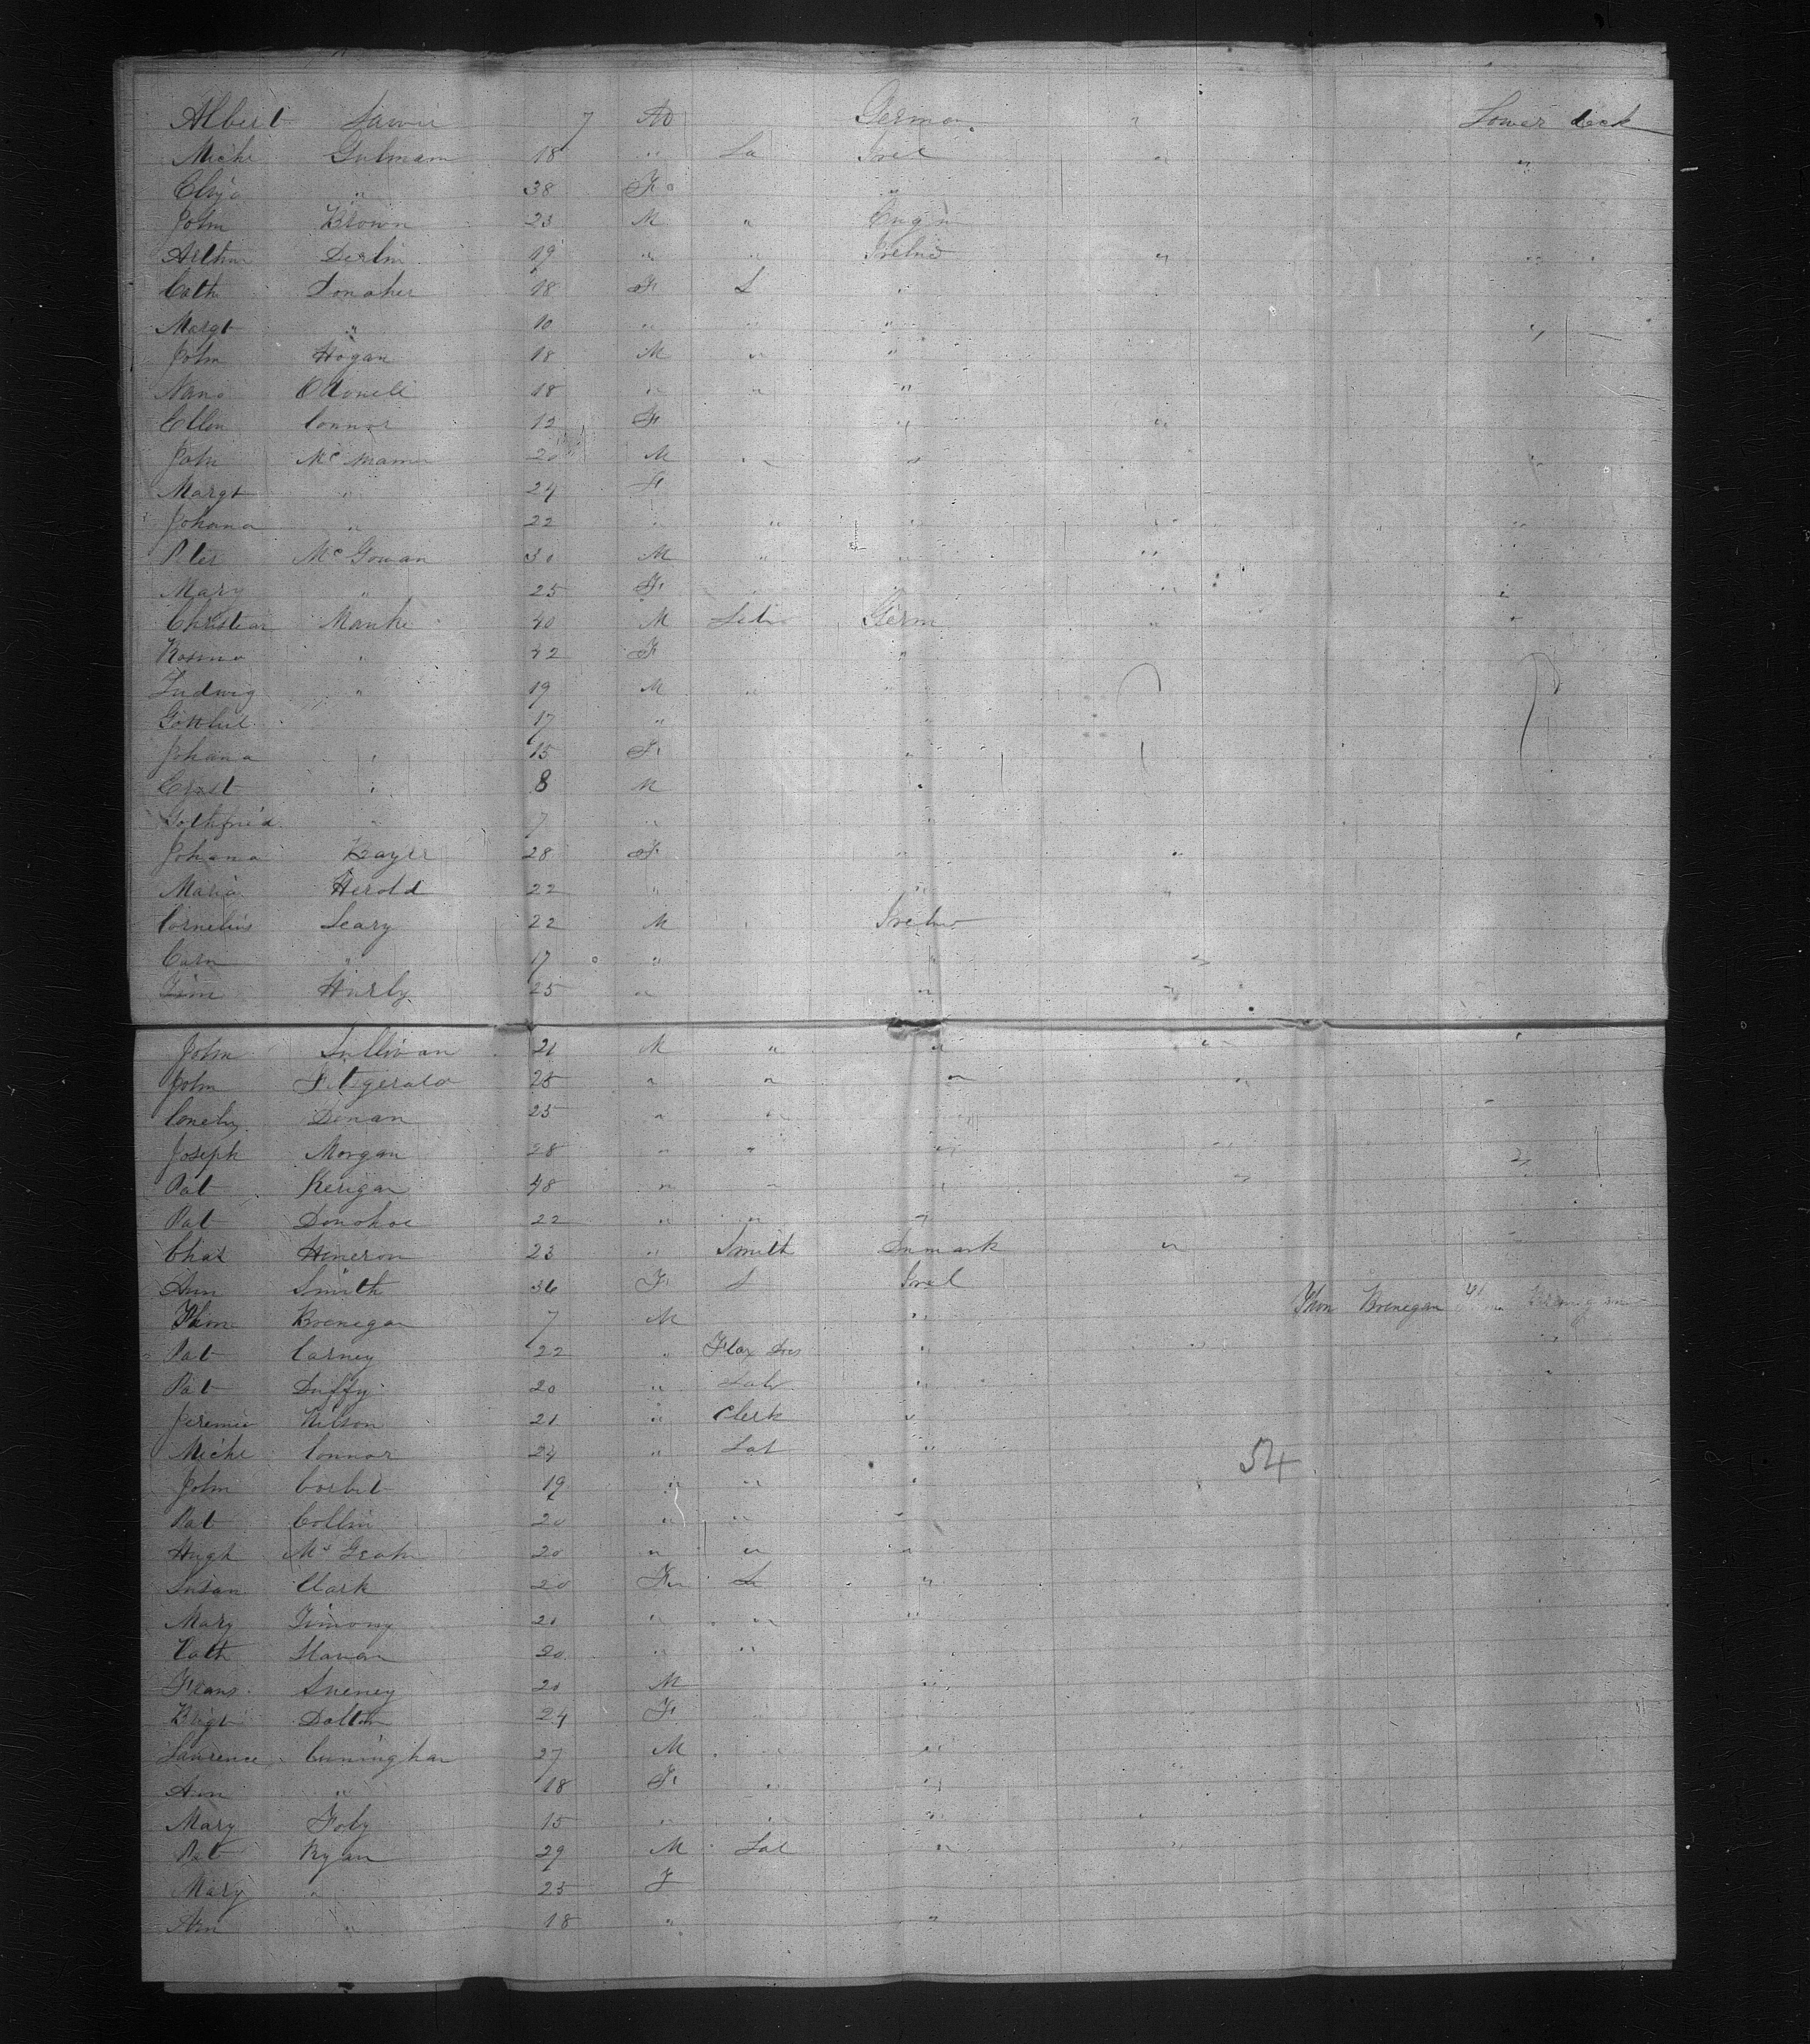 Albert 7 M German " Lower deck
Miche Gulmam 18 " La Irel " "
Eliza " 38 F "
John Brown 23 M " Engn
Arthur Derlin 19 " " Irelnd " "
Cath Donaher 18 F L "
Margt " 10 " " " "
John Hogan 18 M " "
Nano Odonell 18 " " "
Ellen Connor 12 F " "
John Mc mam 20 M " "
Margt " 24 F
Johana " 22 " " " " "
Peter Mc Gowan 30 M " " "
Mary " 25 F " "
Christian Manke 40 M Germ " "
Rosina " 42 F "
Ludwig " 19 M " "
17 " "
Johana " 15 F "
Ernst " 8 M "
Gothfried " 7 " "
Johana 28 F " "
Maria Herold 22 " " "
Cornelius Leary 22 M Irelnd
" 17 " " "
Tim Hurly 25 " " "
John Sullivan 21 M " " "
John Fitzgerald 25 " " " "
Denan 25 " " "
Joseph Morgan 28 " " " " "
Pat Kerigan 48 " " " "
Pat Donohoe 22 " " "
Chas Hineron 23 " Smith Denmark "
Ann Smith 36 F L Irel
Thom Brenegan 7 M " Thom Brenegan
Pat Carney 22 " Flax Drs " " "
Pat Duffy 20 " Lab "
Jeremia Nilson 21 " Clerk "
Miche Connor 24 " Lab " 54
John Corbet 19 " " "
Pat Collin 20 " " "
Hugh Mc Grath 20 " " "
Susan Clark 20 F L "
Mary Timony 21 " " "
Cath Slavan 20 " "
Frans Sweney 20 M "
Brigt Dalton 24 F
Laurence Cuningham 27 M " "
Ann " 18 F " "
Mary Foly 15 " " "
Pat Ryan 29 M Lab " "
Mary " 25 F
Ann " 18 " "